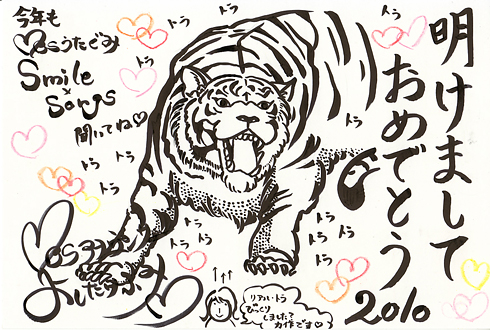 明けまして
おめでとう
2010
今年も
Smile
×
Songs
聞いてね♡
トラ
トラ
トラ
トラ
トラ
トラ
トラ
トラ
トラ
トラ
トラ
トラ
トラ
トラ
トラ
トラ
トラ
トラ
リアル・トラ
びっくり
しました?
力作です♡